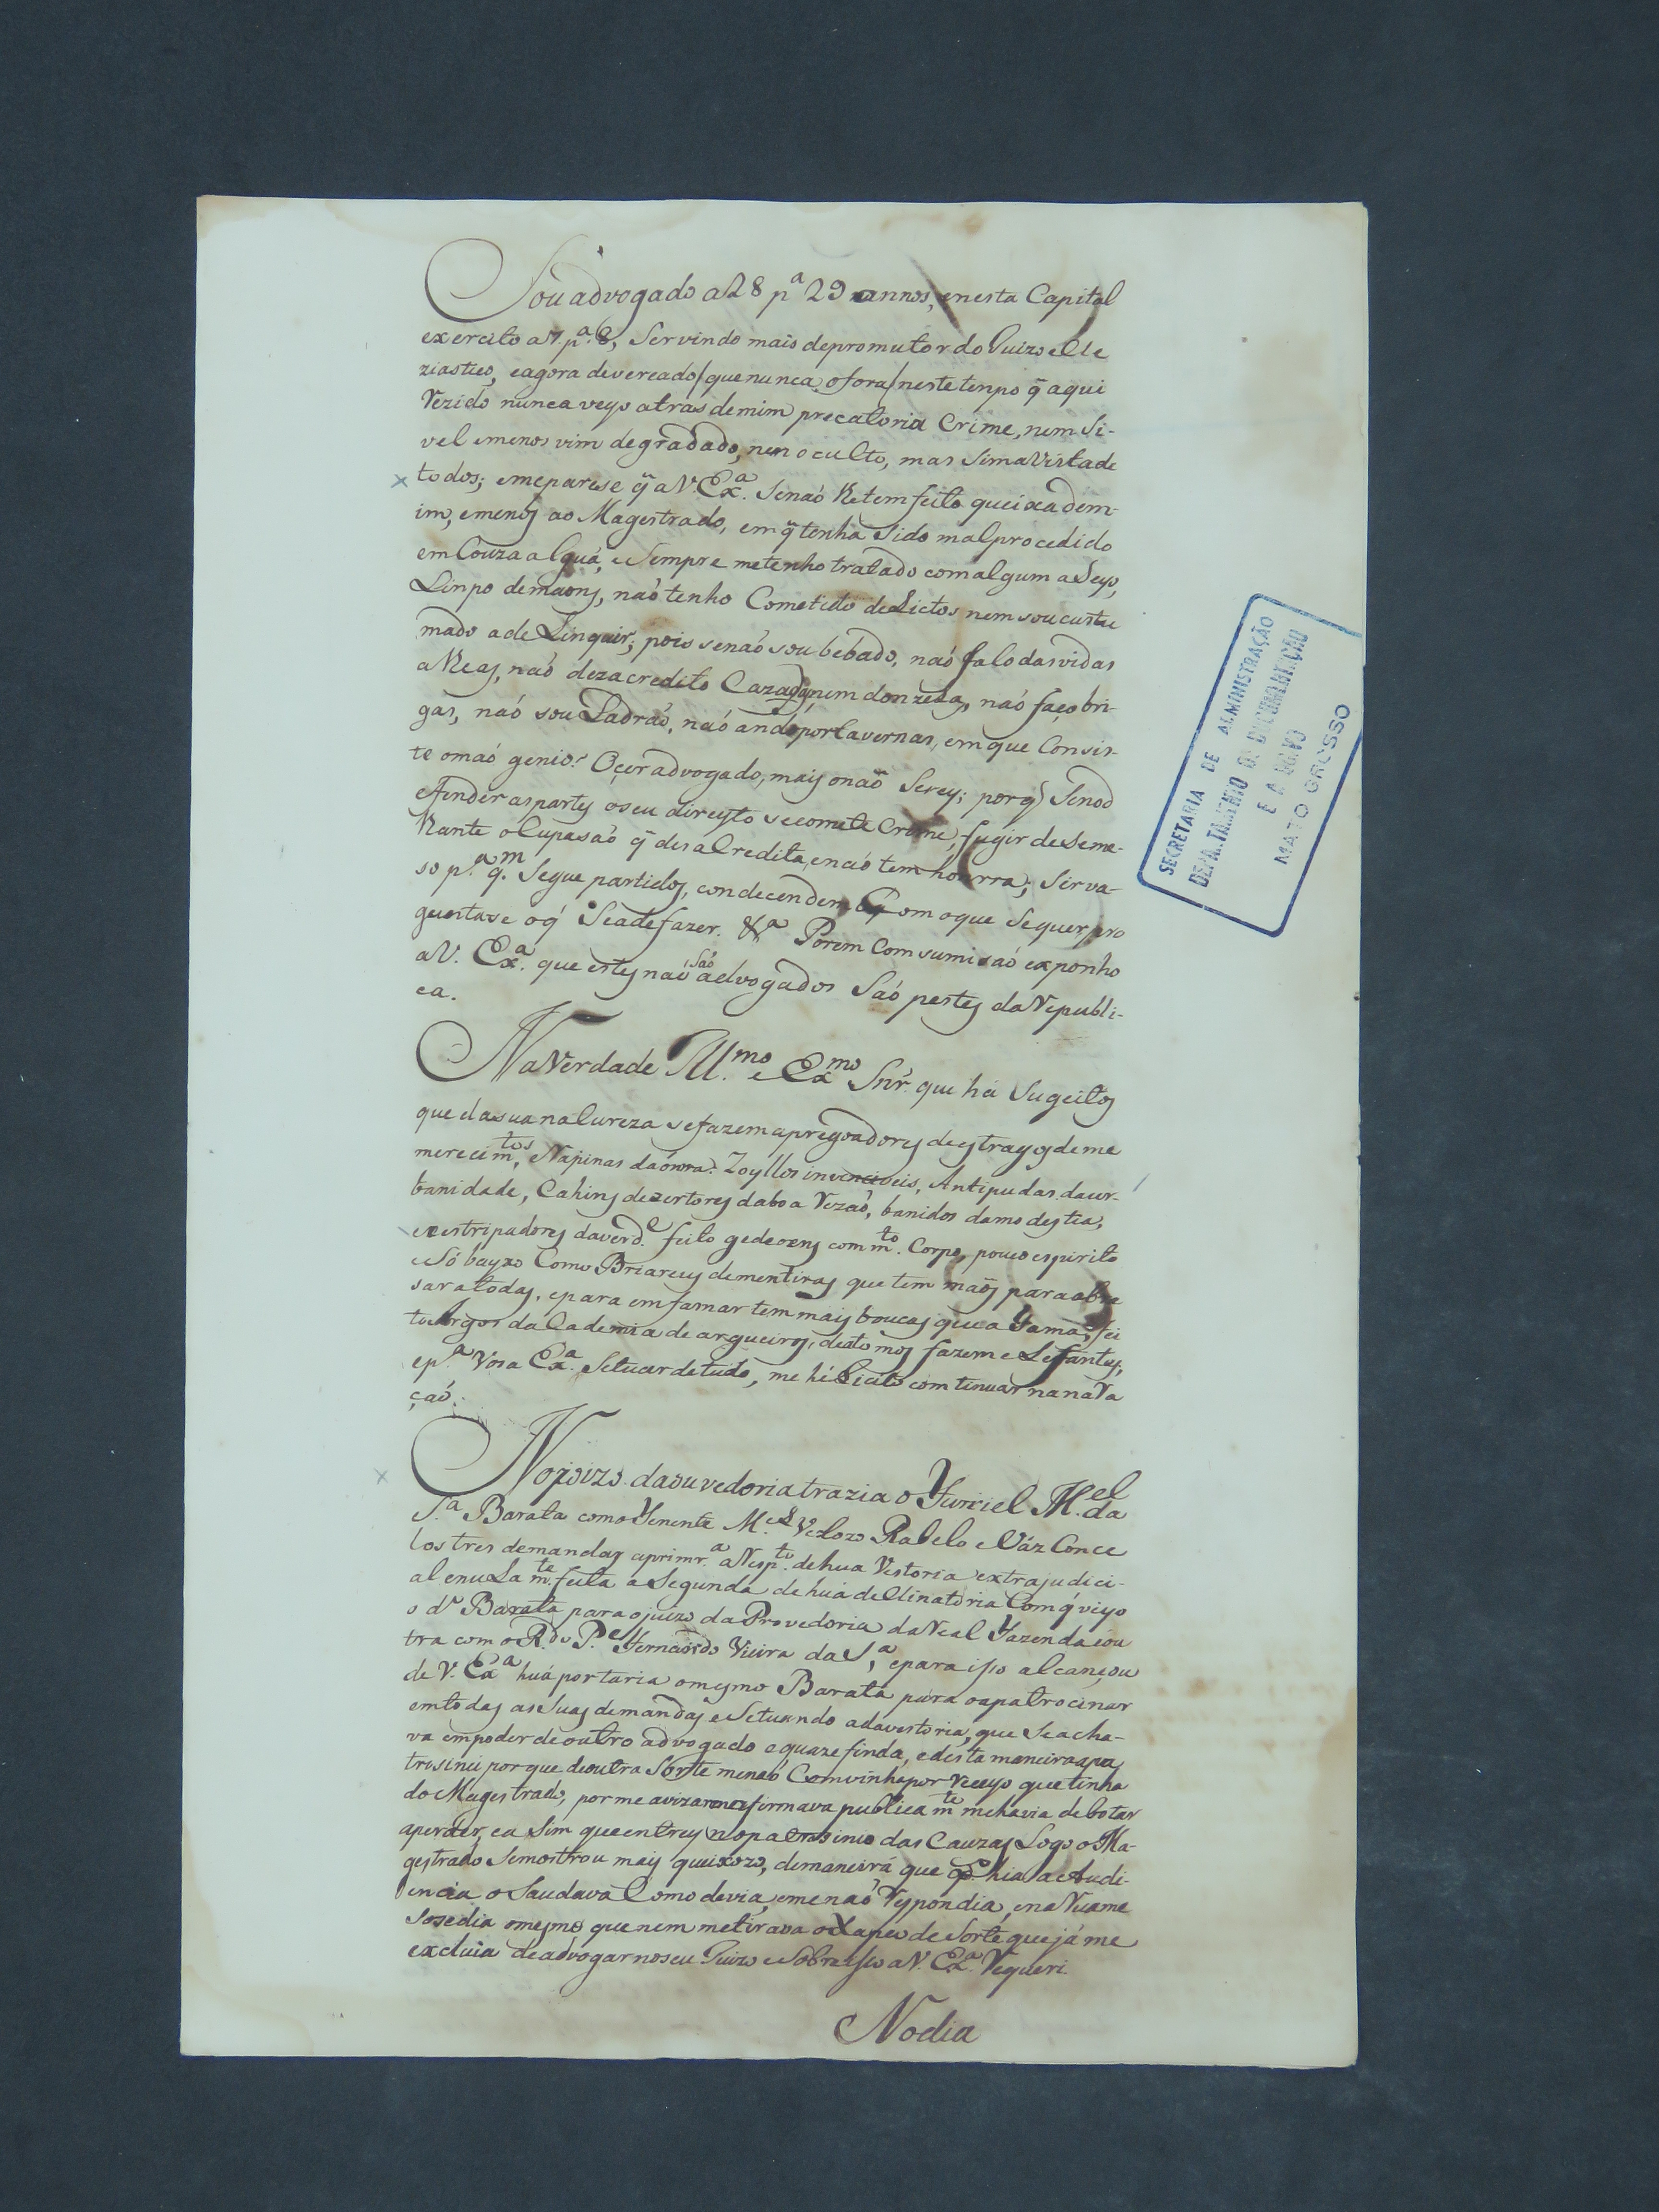 Sou advogado a 28 pª 29 annos, enesta Capital
exercito a 7 pª 8, Servindo mais depromutor do Juizo ecle
ziastico, eagora devereado/quenunca ofora/neste tenpo q̃ aqui
Rezido nunca veyo atras demim precatoria Crime, nem Si-
vel emenos vim degradado, nen oculto, mas Sim aVista de
todos; emeparese q̃ a V. Exª. Senaó Retem feito queixa dem-
im, emenos ao Magestrado, em q̃ tenha Sido mal procedido
em Couza alguá, e Sempre metenho tratado com algum aSeyo,
Linpo demaons, naó tenho Cometido deLictos nem sou custu
mado a deLinquir; pois senaó sou bebado, naó falo das vidas
aReas, naó dezacredito Cazadas, nem donzelas, naó faço bri-
gas, naó sou Ladraó, naó ando por tavernas, em que Consis-
te o maó genio? O çer advogado, mais o naõ Serey; porq̃ Senod
efender as partes o seu direyto se comete Crime, fugir de Seme-
Kante oCupasaó q̃ desaCredita, enaó tem honrra; Sirva-
so pª. q.m Segue partidos, condecendem Com o que Sequer, pro
guesta-se o q̃ Seade fazer. &ª Porem Com sumisaó exponho
a V. Exª. que estes naó Saó advogados Saó pestes da Republi-
ca.
Na Verdade Ill.mo e Ex.mo Snr̃. que há Sugeitos
que da sua natureza se fazem apregoadores de estragos de me
merecim.tos, e Rapinas da ónra? Zoyllos invenciveis, Antipudas da ur-
banidade, Cahins dezertores da boa Rezaó, banidos da modestia,
exestripadores da verd.e feito gedeoens com m.to Corpo, pouco espirito
e Só bayxo Como Briareus dementiras que tem maõs para abra
sar a todas, e para emfamar tem mais boucas que a Fama, fei
tos Argos da Cademia de argueiros, de atomos fazem eLefantes,
e pª. Vosa Exª. Setuar detudo, me hé Licito comtinuar na naRa
çaó.
No juizo da ouvedoria trazia o Furriel M.el da
S.ª Barata como Tenente M.el Velozo Rabelo e Váz Conce
los tres demandas a primr.ª a Resp.to de hua Vestoria extrajudici-
al e nuLa m.te feita a Segunda de huá deClinatoria Com q̃ veyo
o d.º Barata para o juizo da Provedoria da Real Fazenda e ou
tra com o R.do P.e Fernando Vieira da S.ª, e para isso alcançou
de V. Exª huá portaria o mesmo Barata para o apatrocinar
em todas as Suas demandas e Setuando a da vestoria, que Se acha-
va em poder de outro advogado e quaze finda, e desta maneira apa
trosinei porque de outra Sorte me naó Comvinha por Receyo que tinha
do Magestrado, por me avizarem afirmava publica m.te me havia de botar
a perder, e a Sim que entrey no patrosinio das Cauzas Logo o Ma-
gestrado Se mostrou mais queixozo, de maneira que qd.o hia a Audi-
encia o Saudava Como devia, e me naó Respondia, e na Rua me
Sosedia o mesmo, que nem me tirava o Xapeo de Sorte que já me
excluia de advogar no seu Juizo e Sobre isso a V. Exª. Requeri.
No dia
SECRETARIA DE ADMINISTRAÇÃO
DEPARTAMENTO DE DOCUMENTAÇÃO
E ARQUIVO
MATO GROSSO